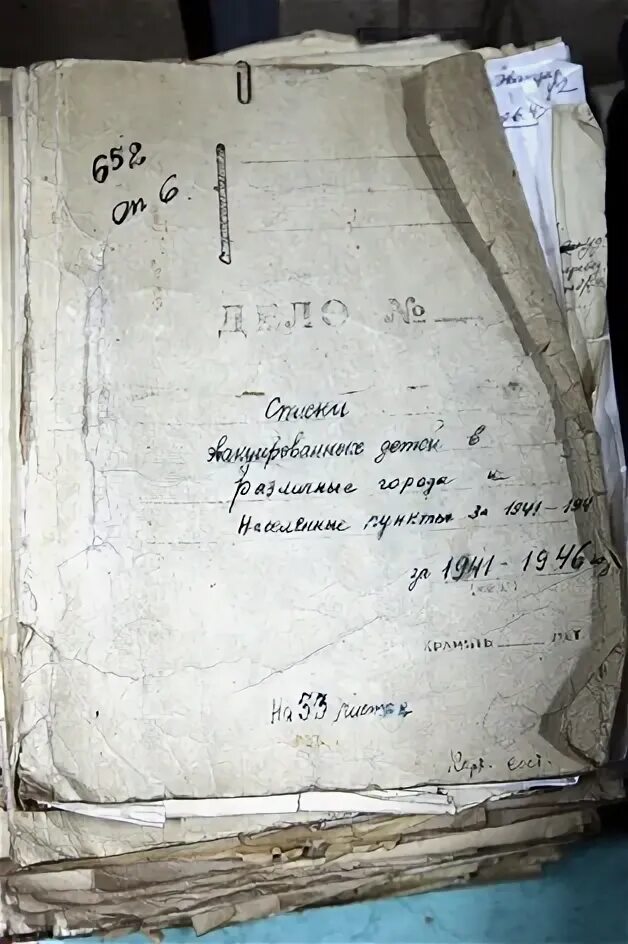 652
оп 6.
ДЕЛО №
Списки
эвакуированных детей в
различные города и
населенные пункты за 1941-194
за 1941-1946
ХРАНИТЬ ЛЕТ
На 53 листах